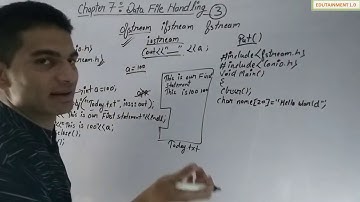 EDUTAINMENT 1.0
Chapter 7 : Data File Handling 3
ofstream ifstream fstream
iostream
cout<<"__"<<a;
a=100
int a=100;
"Today.txt", ios::out);
"This is own First statement"<<endl;
"This is 100"<<a;
close();
This is own First
Statement
This is 100 100
Today.txt
Put()
#include<fstream.h>
#include<conio.h>
Void Main()
{
clrscr();
char name[20]="Hello World";